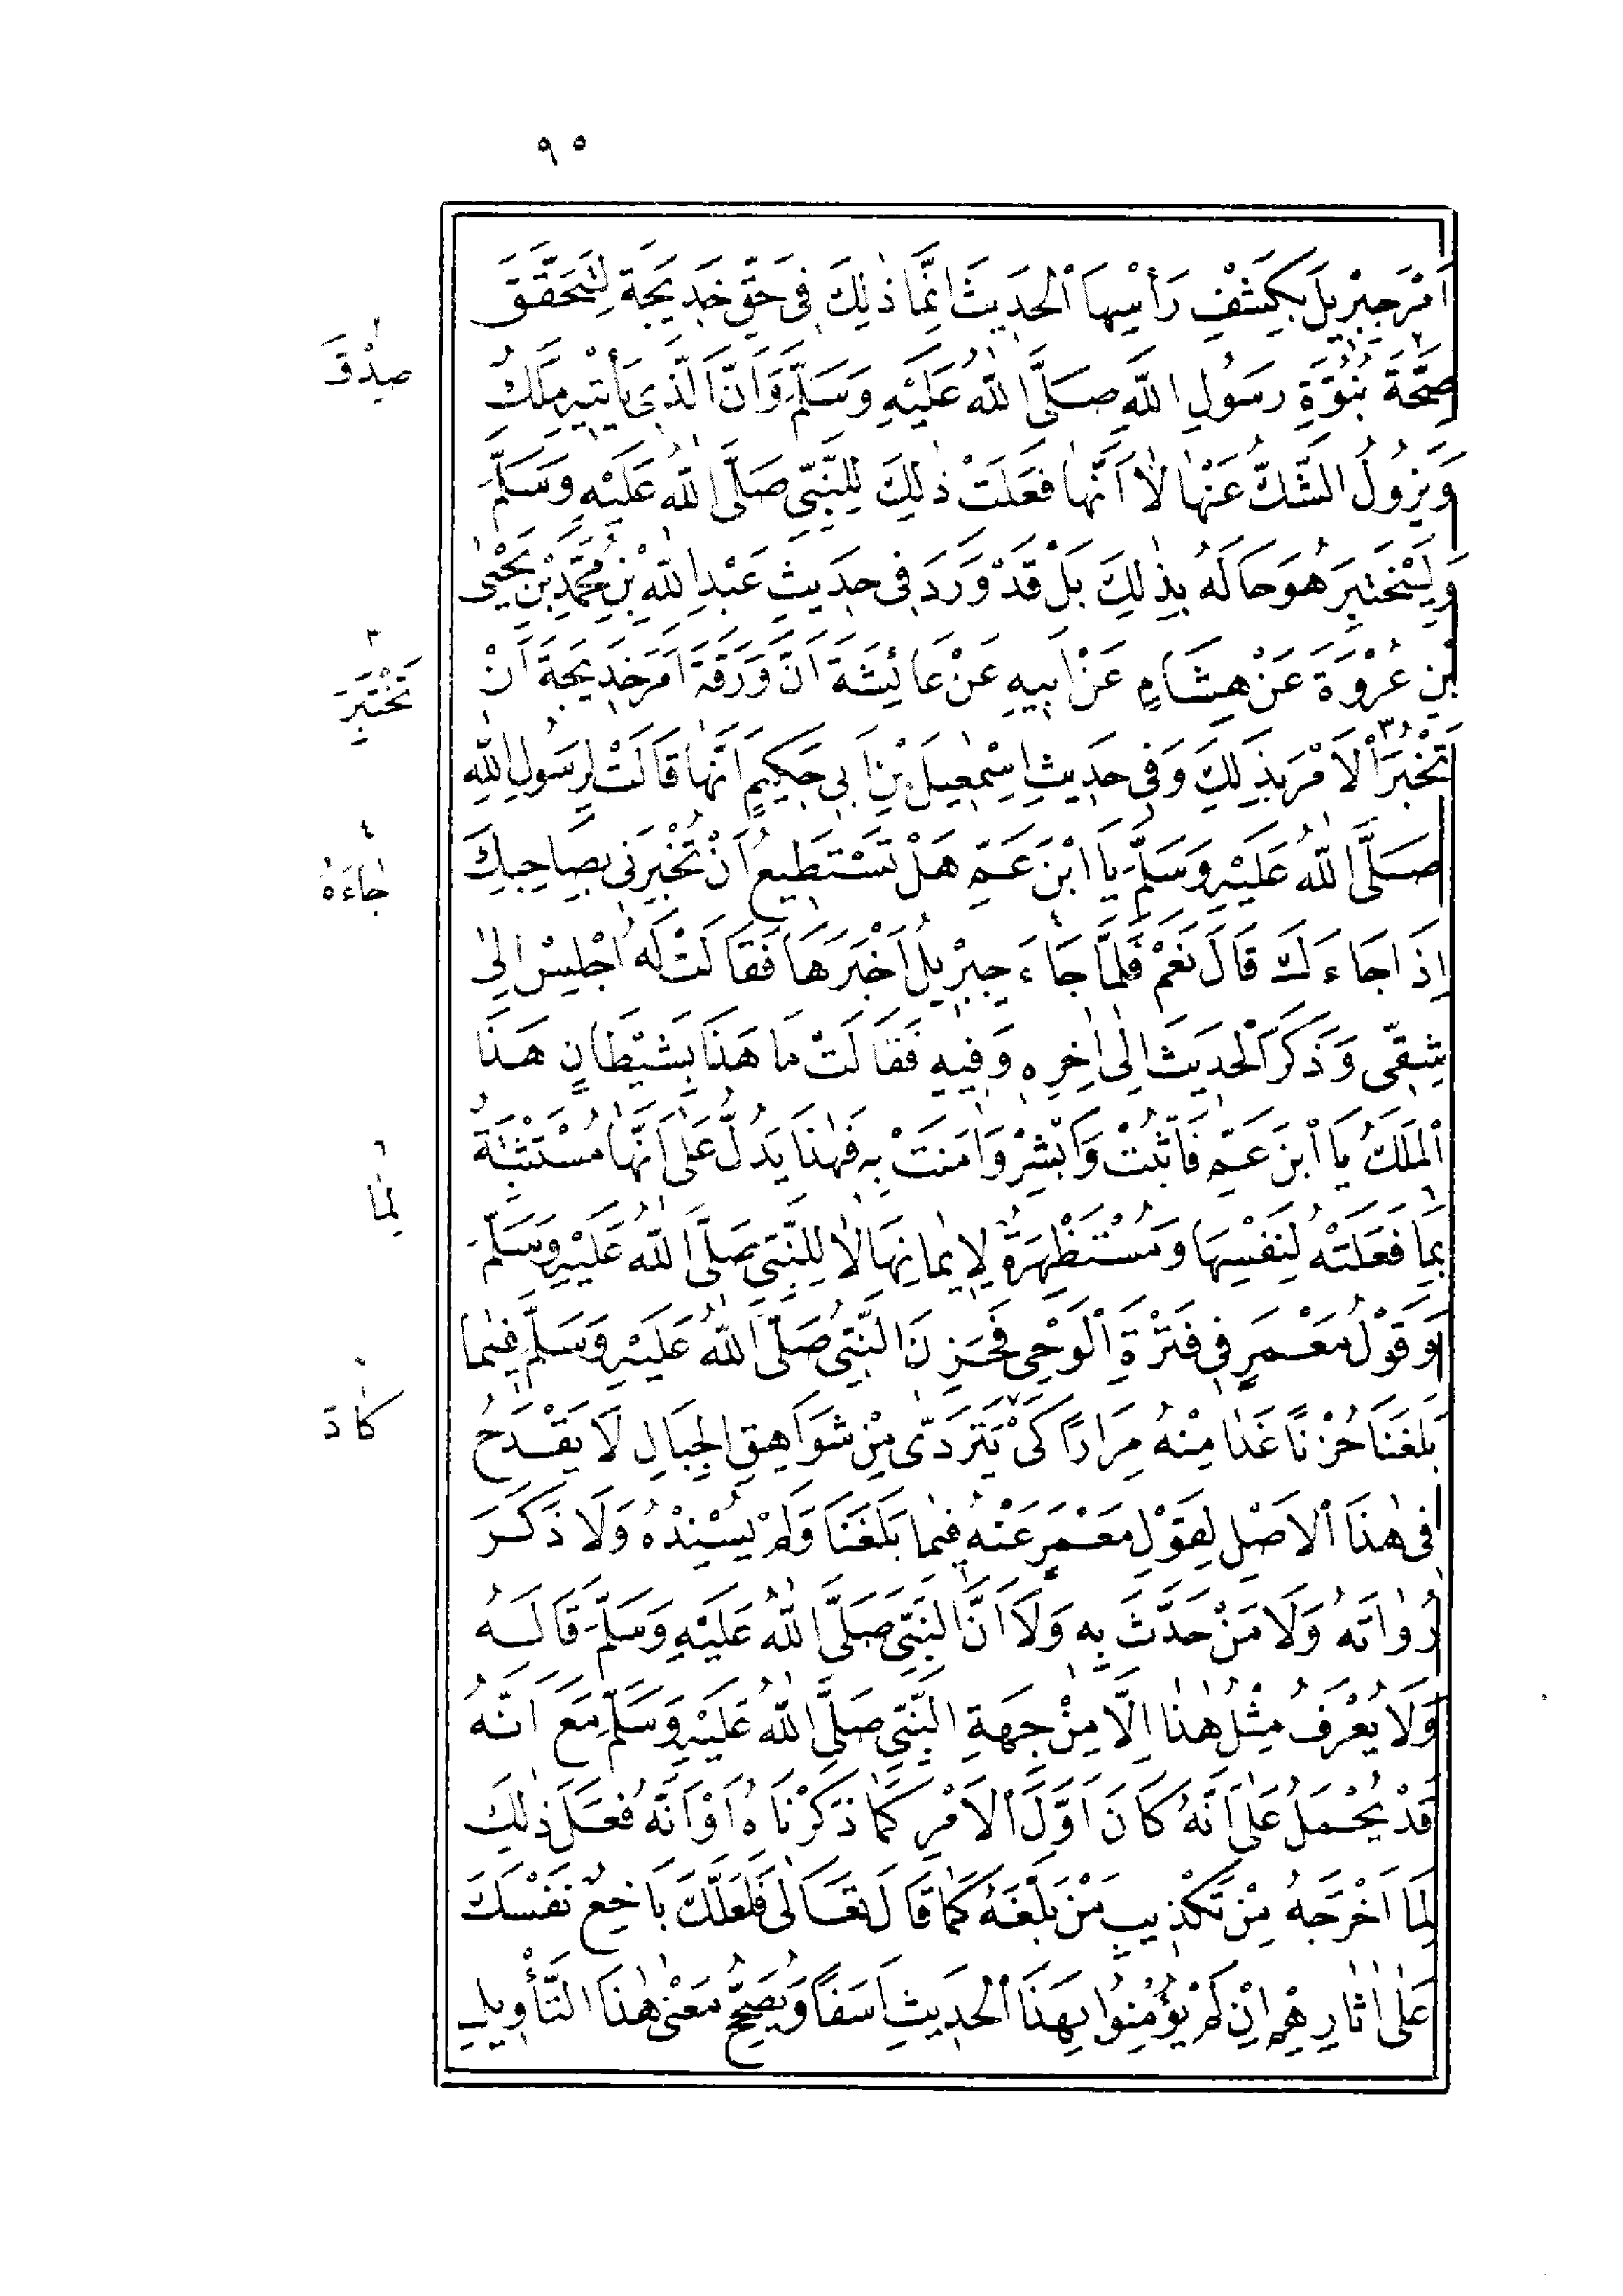 ٩٥
اَمْرَ جِبْرِيلَ بِكَشْفِ رَأْسِهَا الْحَدِيثَ اِنَّمَا ذٰلِكَ فِى حَقِّ خَدِيجَةَ لِتَتَحَقَّقَ
صِحَّةَ نُبُوَّةِ رَسُولِ اللّٰهِ صَلَّى اللّٰهُ عَلَيْهِ وَسَلَّمَ وَاَنَّ الَّذِى يَأْتِيهِ مَلَكٌ
وَيَزُولُ الشَّكُّ عَنْهَا لَا اَنَّهَا فَعَلَتْ ذٰلِكَ لِلنَّبِىِّ صَلَّى اللّٰهُ عَلَيْهِ وَسَلَّمَ
وَلِيَخْتَبِرَ هُوَ حَالَهُ بِذٰلِكَ بَلْ قَدْ وَرَدَ فِى حَدِيثِ عَبْدِ اللّٰهِ بْنِ مُحَمَّدِ بْنِ يَحْيٰى
بْنِ عُرْوَةَ عَنْ هِشَامٍ عَنْ اَبِيهِ عَنْ عَائِشَةَ اَنَّ وَرَقَةَ اَمَرَ خَدِيجَةَ اَنْ
تَخْبُرَ الْاَمْرَ بِذٰلِكَ وَفِى حَدِيثِ اِسْمٰعِيلَ بْنِ اَبِى حَكِيمٍ اَنَّهَا قَالَتْ لِرَسُولِ اللّٰهِ
صَلَّى اللّٰهُ عَلَيْهِ وَسَلَّمَ يَا ابْنَ عَمِّ هَلْ تَسْتَطِيعُ اَنْ تُخْبِرَنِى بِصَاحِبِكَ
اِذَا جَاءَكَ قَالَ نَعَمْ فَلَمَّا جَاءَ جِبْرِيلُ اَخْبَرَهَا فَقَالَتْ لَهُ اجْلِسْ اِلٰى
شِقِّى وَذَكَرَ الْحَدِيثَ اِلٰى اٰخِرِهِ وَفِيهِ فَقَالَتْ مَا هَذَا بِشَيْطَانٍ هَذَا
الْمَلَكُ يَا ابْنَ عَمِّ فَاثْبُتْ وَاَبْشِرْ وَاٰمَنَتْ بِهِ فَهٰذَا يَدُلُّ عَلٰى اَنَّهَا مُسْتَثْبِتَةٌ
بِمَا فَعَلَتْهُ لِنَفْسِهَا وَمُسْتَظْهِرَةٌ لِاِيمَانِهَا لَا لِلنَّبِىِّ صَلَّى اللّٰهُ عَلَيْهِ وَسَلَّمَ
وَقَوْلُ مَعْمَرٍ فِى فَتْرَةِ الْوَحْىِ فَحَزِنَ النَّبِىُّ صَلَّى اللّٰهُ عَلَيْهِ وَسَلَّمَ فِيمَا
بَلَغَنَا حُزْنًا غَدَا مِنْهُ مِرَارًا كَىْ يَتَرَدّٰى مِنْ شَوَاهِقِ الْجِبَالِ لَا يَقْدَحُ
فِى هٰذَا الْاَصْلِ لِقَوْلِ مَعْمَرٍ عَنْهُ فِيمَا بَلَغَنَا وَلَمْ يُسْنِدْهُ وَلَا ذَكَرَ
رُوَاتَهُ وَلَا مَنْ حَدَّثَ بِهِ وَلَا اَنَّ النَّبِىَّ صَلَّى اللّٰهُ عَلَيْهِ وَسَلَّمَ قَالَهُ
وَلَا يُعْرَفُ مِثْلُ هٰذَا اِلَّا مِنْ جِهَةِ النَّبِىِّ صَلَّى اللّٰهُ عَلَيْهِ وَسَلَّمَ مَعَ اَنَّهُ
قَدْ يُحْمَلُ عَلٰى اَنَّهُ كَانَ اَوَّلَ الْاَمْرِ كَمَا ذَكَرْنَاهُ اَوْ اَنَّهُ فَعَلَ ذٰلِكَ
لِمَا اَخْرَجَهُ مِنْ تَكْذِيبِ مَنْ بَلَّغَهُ كَمَا قَالَ تَعَالٰى فَلَعَلَّكَ بَاخِعٌ نَفْسَكَ
عَلٰى اٰثَارِهِمْ اِنْ لَمْ يُؤْمِنُوا بِهَذَا الْحَدِيثِ اَسَفًا وَيُصَحِّحُ مَعْنٰى هٰذَا التَّأْوِيلِ
صِدْقَ
٣
تَخْتَبِرَ
٤
جَاءَهُ
٦
لِمَا
كَادَ